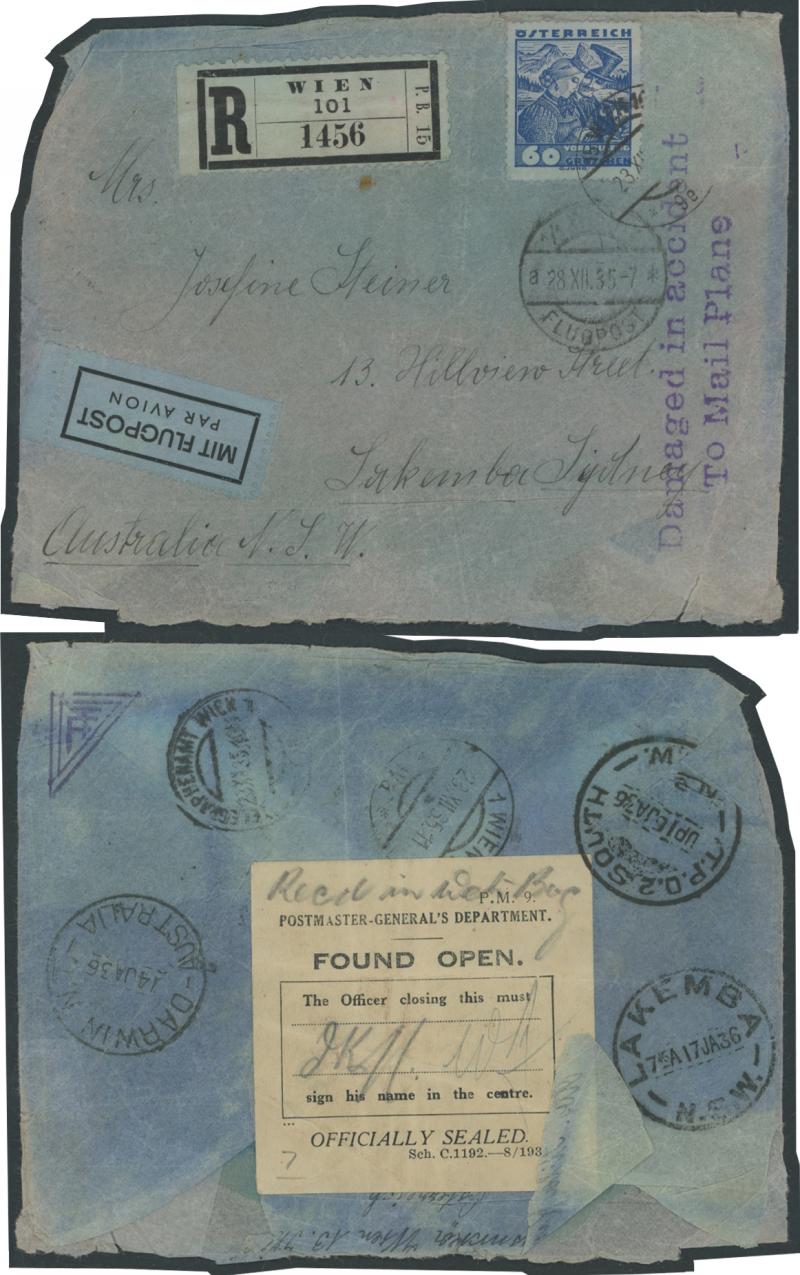 WIEN
101
1456
R
P. B. 15
ÖSTERREICH
60
VORARLBERG
GROSCHEN
23.XII
9e
a 28 XII.35-7 *
FLUGPOST
Damaged in accident
To Mail Plane
Mrs.
Josefine Steiner
13. Hillview Street.
Lakemba Sydney
Australia N. S. W.
MIT FLUGPOST
PAR AVION
TELEGRAPHENAMT WIEN 1
23.XII.35
1 WIEN
23.XII.35
T.P.O.2.SOUTH
UP 16JA36
DARWIN
AUSTRALIA
14JA36
Recd in Wet Bag
P.M. 9.
POSTMASTER-GENERAL'S DEPARTMENT.
FOUND OPEN.
The Officer closing this must
sign his name in the centre.
OFFICIALLY SEALED.
Sch. C.1192.—8/193
7
LAKEMBA
7 A 17JA36
N.S.W.
Wien 13.